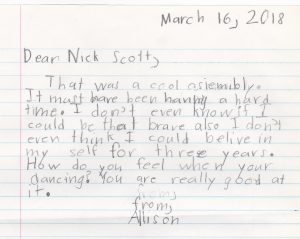 March 16, 2018
Dear Nick Scott,
That was a cool asiembly.
It must have been having a hard
time. I don't even know if I
could be that brave also I don't
even think I could belive in
my self for three years.
How do you feel when your
dancing? You are really good at
it.
from,
from,
Allison